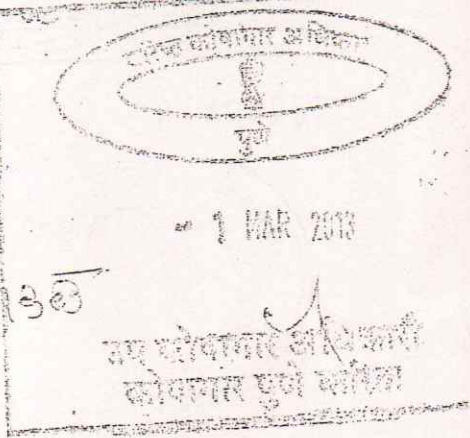 कोषागार
पुणे
1 MAR 2013
उप कोषागार अधिकारी
कोषागार पुणे करिता